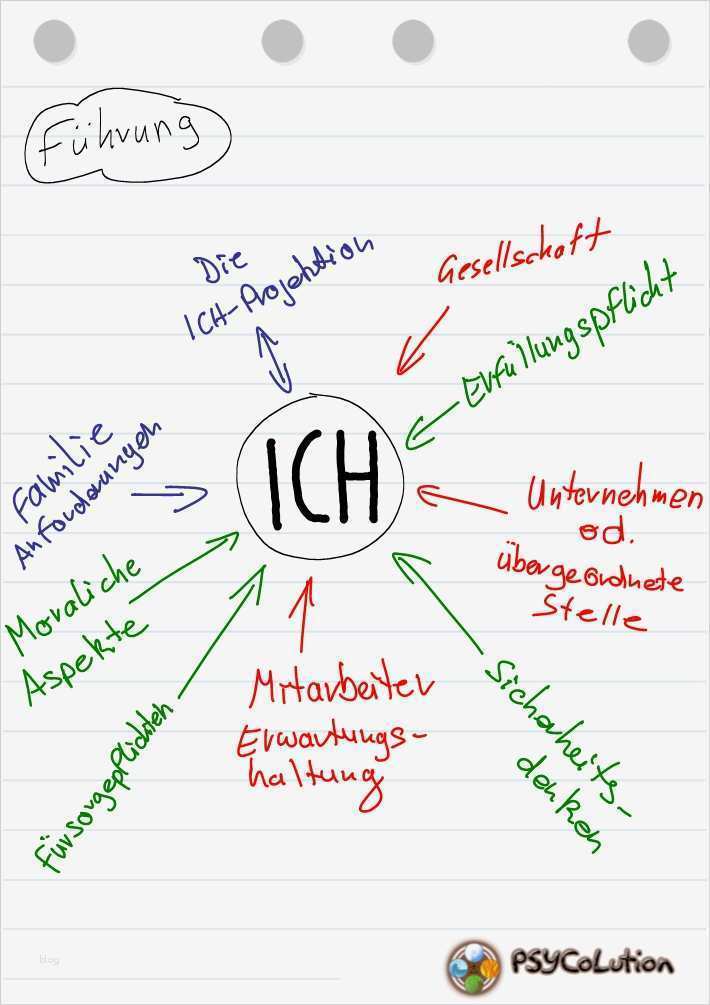 Führung
Die
ICH-Projektion
Gesellschaft
Erfüllungspflicht
ICH
Familie
Anforderungen
Unternehmen
od.
übergeordnete
Stelle
Moraliche
Aspekte
Mitarbeiter
Erwartungs-
haltung
Sicherheits-
denken
Fürsorgepflichten
blog
PSYCoLution